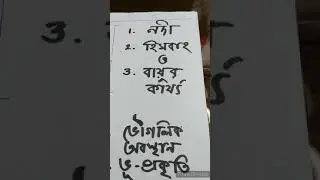 1. নদী
2. হিমবাহ
ও
3. বায়ুর
কার্য্য
ভৌগলিক
অবস্থান
ভূ-প্রকৃতি